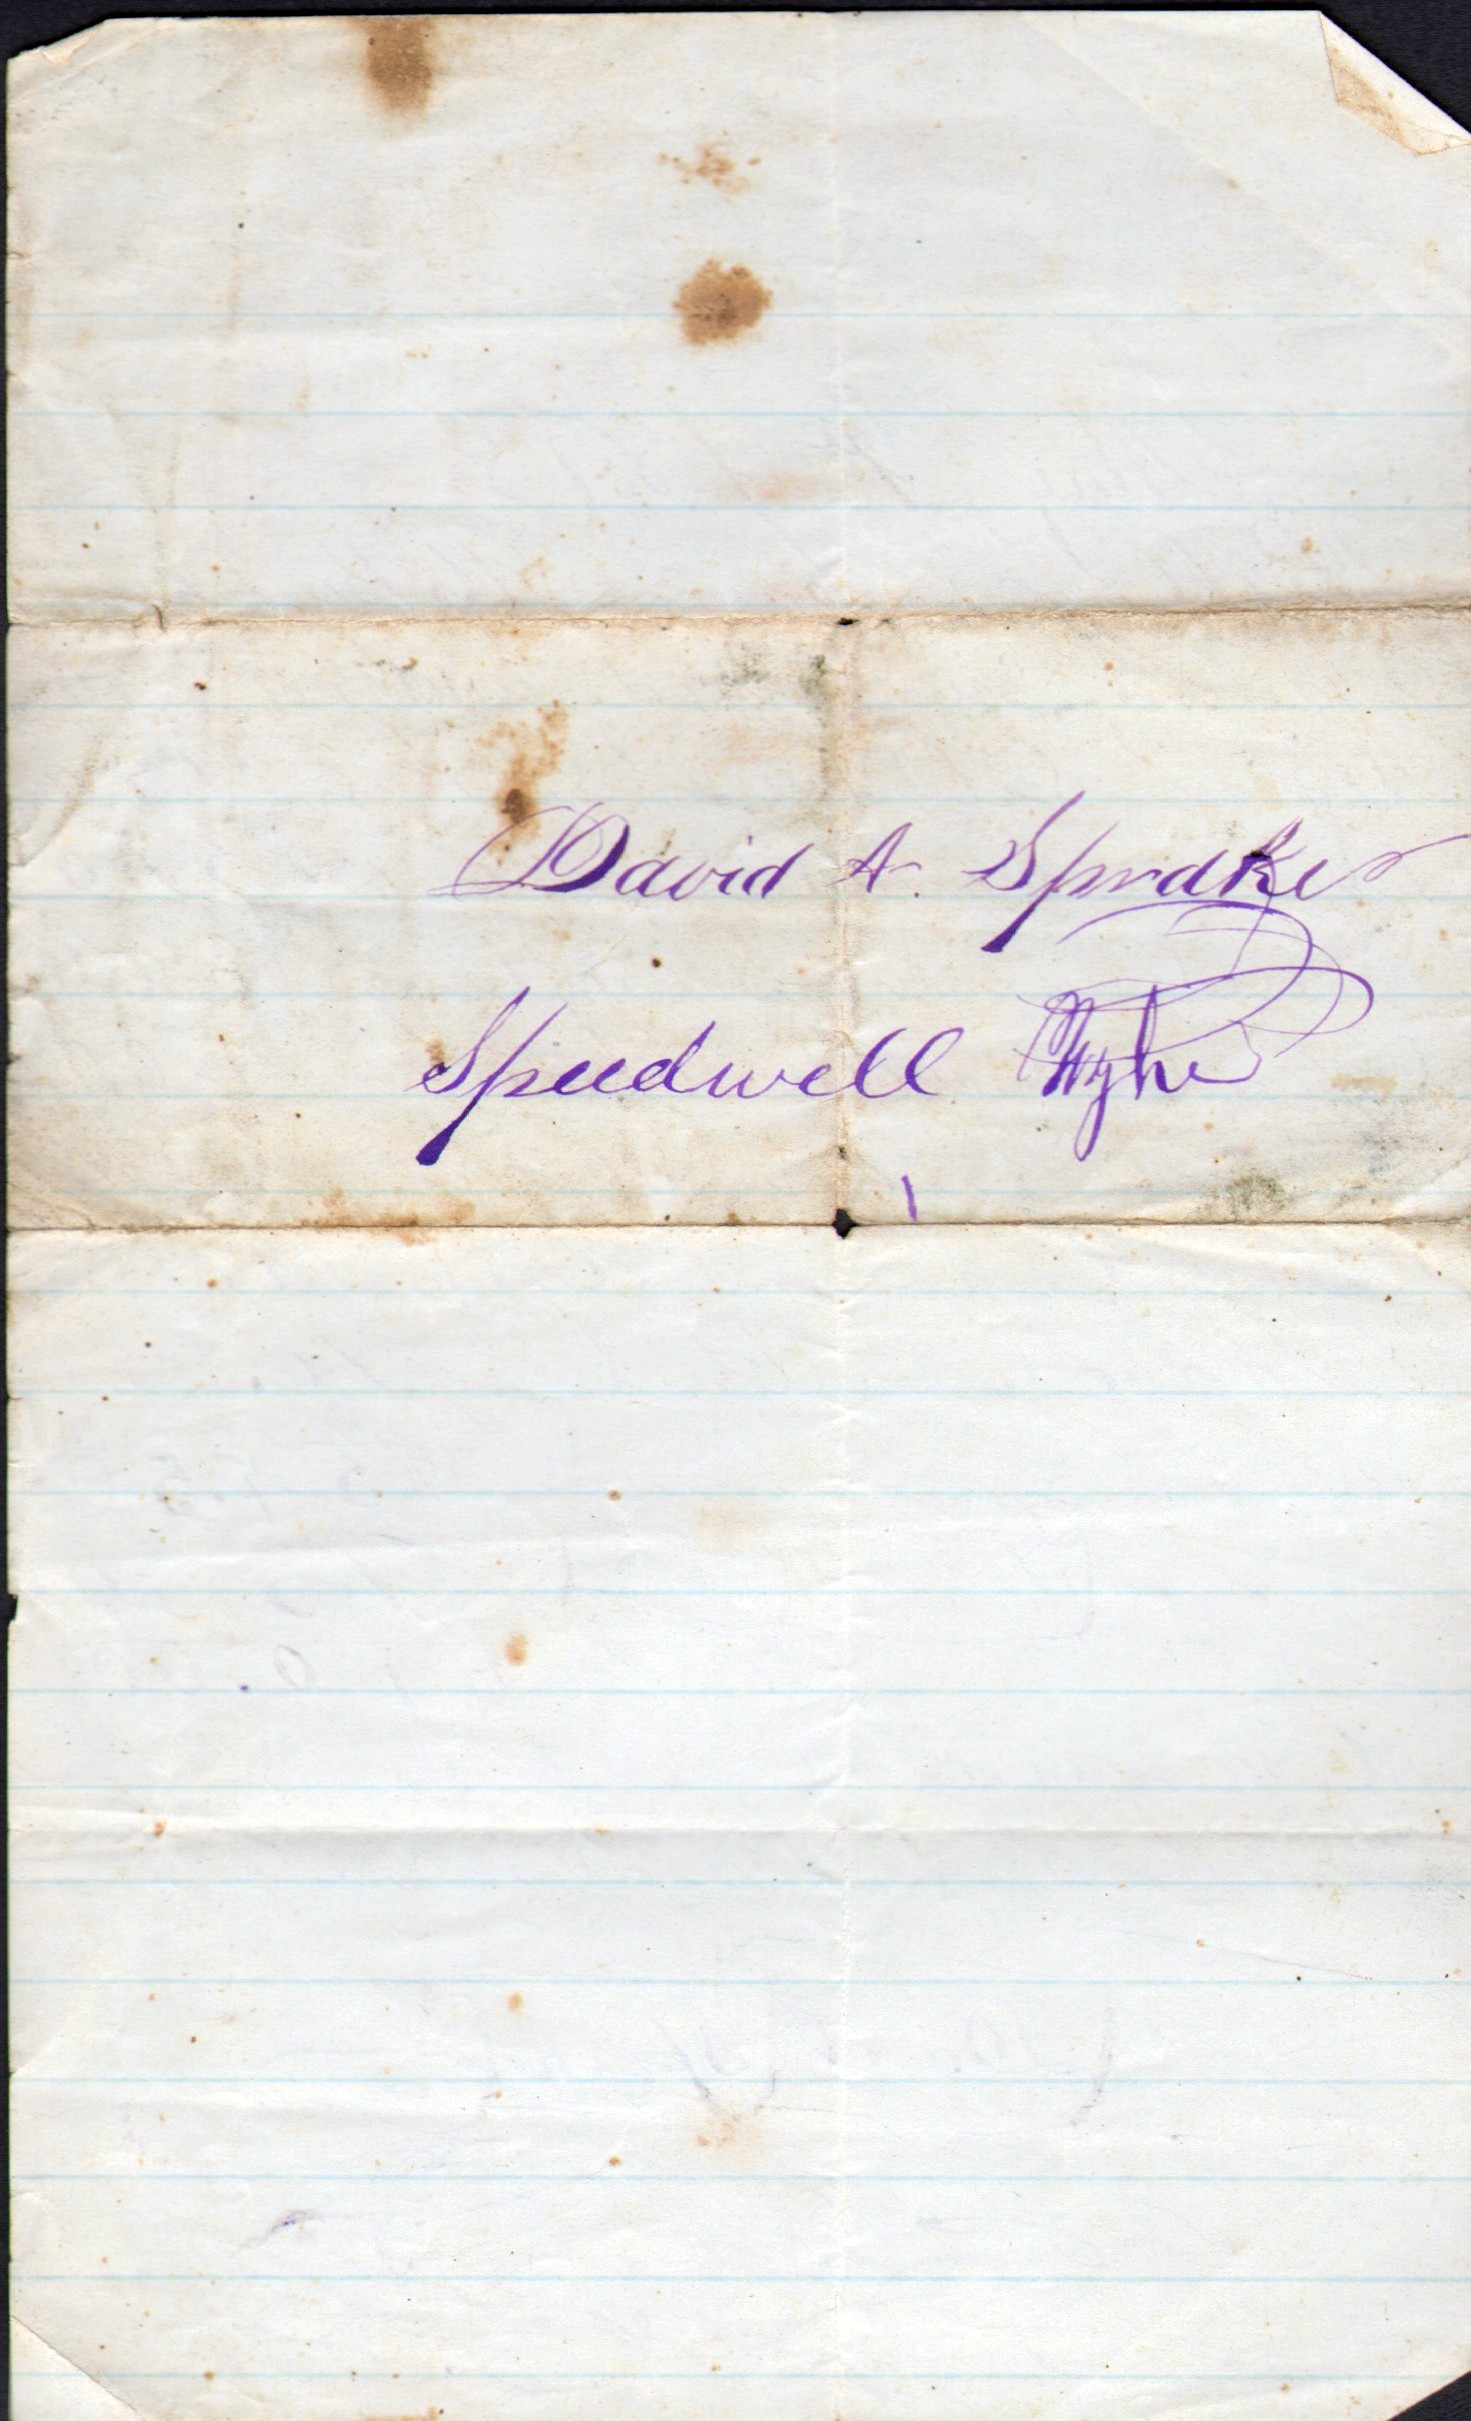 David A. Spraker
Speedwell Wythe